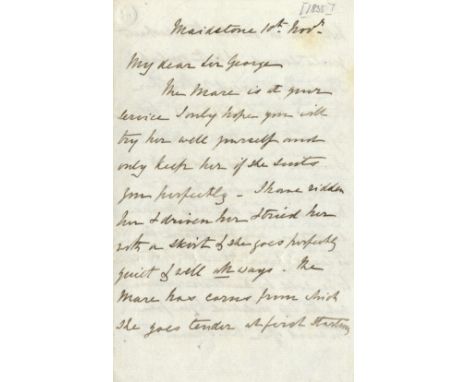 [1835]
Maidstone 10th Novr.
My dear Sir George
The Mare is at your
service I only hope you will
try her well yourself and
only keep her if she suits
you perfectly – I have ridden
her & driven her & tried her
with a skirt & she goes perfectly
quiet & well all ways. The
Mare has corns from which
she goes tender at first starting